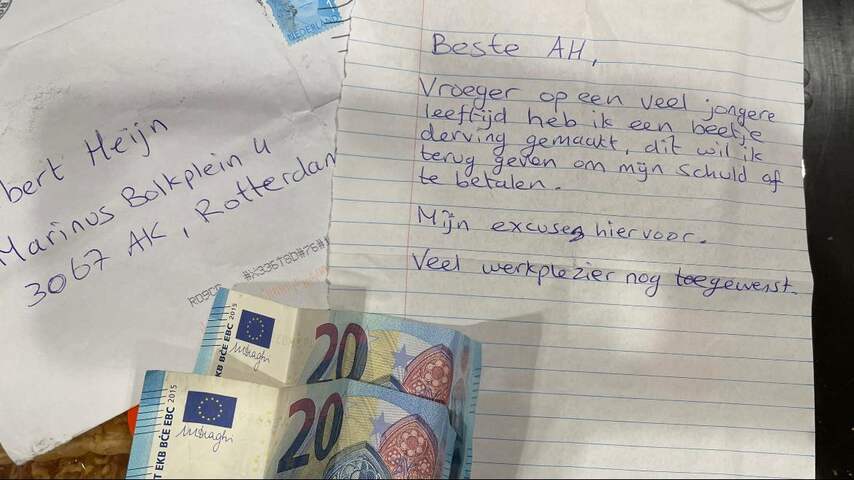 NEDERLAND
1
bert Heijn
Marinus Bolkplein 4
3067 AK, Rotterdam
#X336T8D#76#
Beste AH,
Vroeger op een veel jongere
leeftijd heb ik een beetje
derving gemaakt, dit wil ik
terug geven om mijn schuld af
te betalen.
Mijn excuses hiervoor.
Veel werkplezier nog toegewenst.
EKB BCE EBC 2015
20
EKB BCE EBC 2015
20